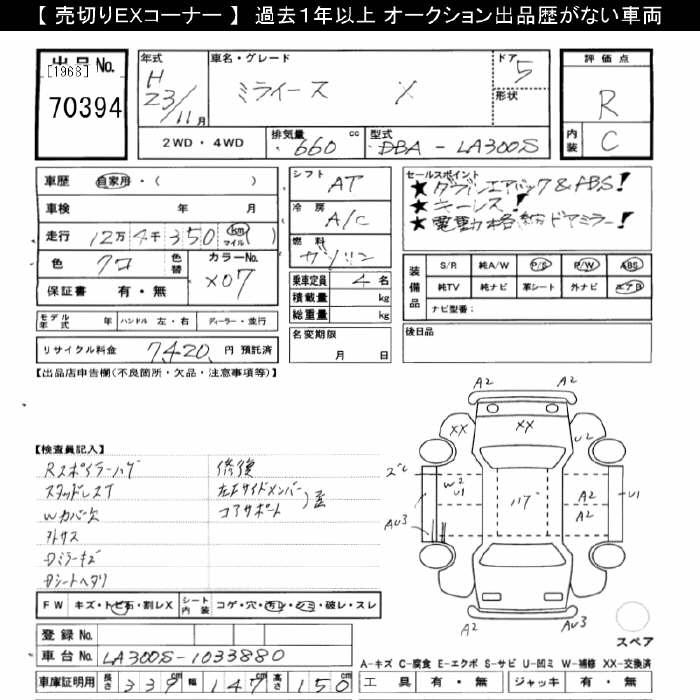 【 売切りEXコーナー 】 過去1年以上 オークション出品歴がない車両
出品 No.
[1968]
70394
年式
H
23/11月
車名・グレード
ミライース X
ドア
5
形状
評価点
R
内装
C
2WD・4WD
排気量
660 cc
型式
DBA - LA300S
車歴 自家用・( )
車検 年 月
走行 12万 4千 350 km マイル ( )
色 クロ 色替 カラーNo. X07
保証書 有・無
シフト AT
冷房 A/C
燃料 ガソリン
乗車定員 4 名
積載量 kg
総重量 kg
セールスポイント
★ Wエアバッグ&ABS!
★ キーレス!
★ 電動格納ドアミラー!
装備品
S/R 純A/W P/S P/W ABS
純TV 純ナビ 革シート 外ナビ エアB
ナビ型番:
モデル年式 年 ハンドル 左・右 ディーラー・並行
名変期限 月 日
後日品
リサイクル料金 7,420 円 預託済
【出品店申告欄(不良箇所・欠品・注意事項等)】
【検査員記入】
Rスポイラーハゲ
スタッドレスT
Wカバー欠
外サス
Dシートヘタリ
修復
コアサポート
歪
A2 A2
XX XX U2
ズレ
W2
U1
ハゲ
A2
A2
U1
AU3
A2 AU3
スペア
FW キズ・トビ石・割レX シート内装 コゲ・穴・汚レ・シミ・破レ・スレ
登録 No.
車台 No. LA300S-1033880
車庫証明用 長さ 339 幅 147 高さ 150 cm
A-キズ C-腐食 E-エクボ S-サビ U-凹ミ W-補修 XX-交換済
工具 有・無 ジャッキ 有・無